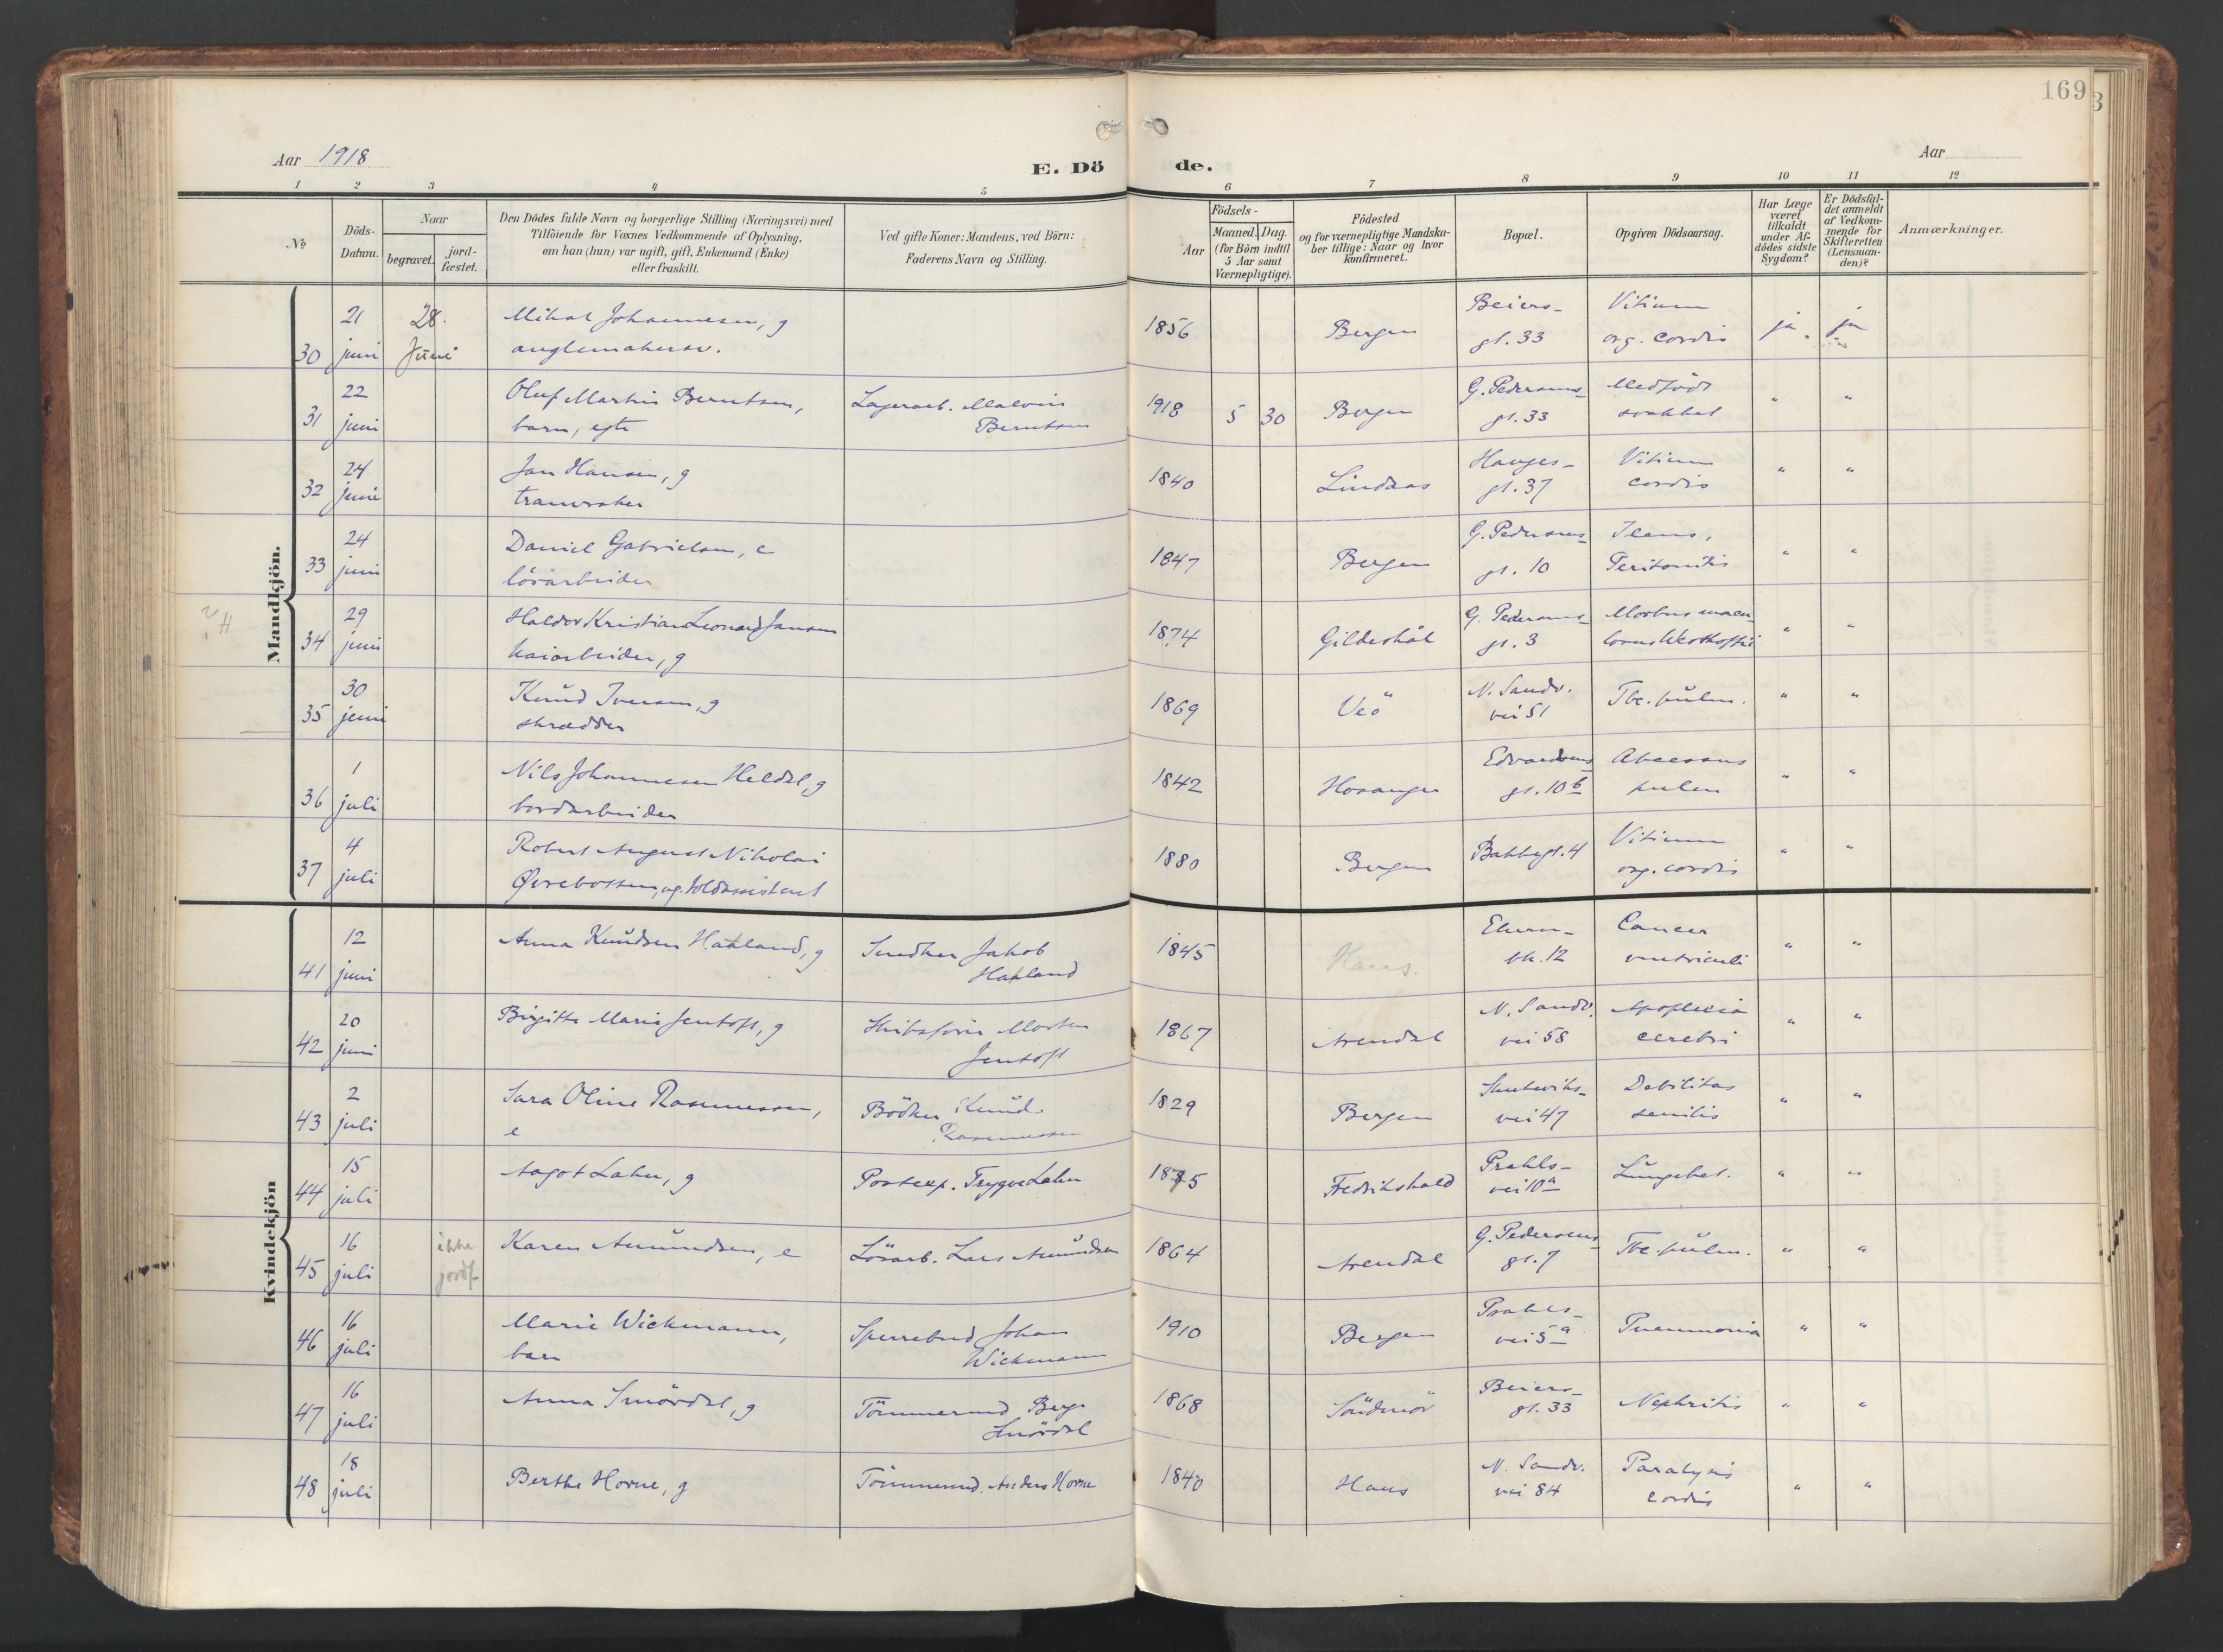 169
Aar 1918
E. Dö de.
Aar
1 2 3 4 5 6 7 8 9 10 11 12
№
Döds-Datum.
Naar
begravet.
jord-fæstet.
Den Dödes fulde Navn og borgerlige Stilling (Næringsvei) med
Tilföiende for Voxnes Vedkommende af Oplysning,
om han (hun) var ugift, gift, Enkemand (Enke)
eller fraskilt.
Ved gifte Koner: Mandens, ved Börn:
Faderens Navn og Stilling.
Födsels-
Aar
Maaned. Dag.
(for Börn indtil
5 Aar samt
Værnepligtige).
Födested
og for værnepligtige Mandska-
ber tillige: Naar og hvor
konfirmeret.
Bopæl.
Opgiven Dödsaarsag.
Har Læge
været
tilkaldt
under Af-
dödes sidste
Sygdom?
Er Dödsfal-
det anmeldt
af Vedkom-
mende for
Skifteretten
(Lensman-
den)?
Anmærkninger.
Mandkjön.
30 21 juni 28. Juni Johannesen, g 1856 Bergen Beiers-gt. 33 Vitium org. cordis ja. ja
31 22 juni Oluf Martin Berntsen, barn, egte Lagerarb. Malvin Berntsen 1918 5 30 Bergen G. Pedersens-gt. 33 Medfödt svakhet " "
32 24 juni Jan Hansen, g tranvraker 1840 Lindaas Hauges-gt. 37 Vitium cordis " "
33 24 juni Daniel Gabrielsen, e lösarbeider 1847 Bergen G. Pedersens-gt. 10 Ileus, Peritonitis " "
34 29 juni Haldor Kristian Leonard Jansen kaiarbeider, g 1874 Gildeskål G. Pedersens-gt. 3 Morbus macu-losus Werlhoffii " "
35 30 juni Knud Iversen, g skrædder 1869 Veö N. Sandv. vei 51 Tbc. pulm. " "
36 1 juli Nils Johannesen Heldal, g bordarbeider 1842 Hosanger Edvardsens gt. 10 b Abcessus pulm " "
37 4 juli Robert August Nikolai Øvrebotten, ug. toldassistent 1880 Bergen Bakkegt. 4 Vitium org. cordis " "
Kvindekjön
41 12 juni Anna Knudsen Haaland, g Snedker Jakob Haaland 1845 Haus. 12 Cancer ventriculi " "
42 20 juni Birgitte Marie Jentoft, g Skibsförer Morten Jentoft 1867 Arendal N. Sandv. vei 58 Apoplexia cerebri " "
43 2 juli Sara Oline Rasmussen, e Bödker Knud Rasmussen 1829 Bergen Skuteviks-vei 47 Debilitas senilis " "
44 15 juli Aagot Lahn, g Postexp. Trygve Lahn 1875 Fredrikshald Prahls-vei 10 a Lungebet. " "
45 16 juli ikke jordf. Karen Amundsen, e Lösarb. Lars Amundsen 1864 Arendal G. Pedersens gt. 7 Tbc. pulm. " "
46 16 juli Marie Wickmann, barn Sperrebud Johan Wickmann 1910 Bergen Prahls-vei 5 a Pneumonia " "
47 16 juli Anna Smördal, g Tömmermd Berge Smördal 1868 Söndmör Beiers-gt. 33 Nephritis " "
48 18 juli Berthe Horne, g Tömmermd. Anders Horne 1840 Haus N. Sandv. vei 84 Paralysis cordis " "